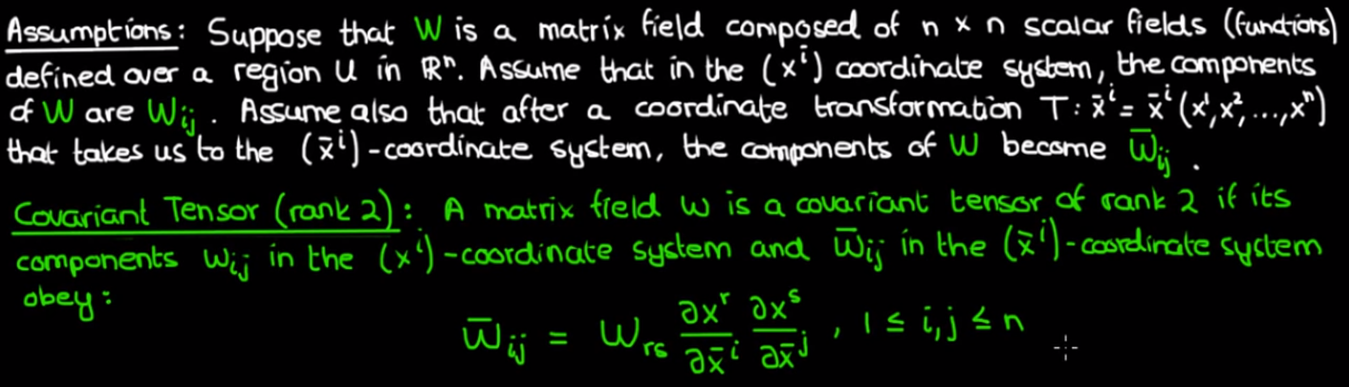 Assumptions: Suppose that W is a matrix field composed of n × n scalar fields (functions)
defined over a region U in ℝⁿ. Assume that in the (xⁱ) coordinate system, the components
of W are Wᵢⱼ. Assume also that after a coordinate transformation T: x̄ⁱ = x̄ⁱ(x¹,x²,...,xⁿ)
that takes us to the (x̄ⁱ)-coordinate system, the components of W become W̄ᵢⱼ.
Covariant Tensor (rank 2): A matrix field W is a covariant tensor of rank 2 if its
components Wᵢⱼ in the (xⁱ)-coordinate system and W̄ᵢⱼ in the (x̄ⁱ)-coordinate system
obey:
W̄ᵢⱼ = Wᵣₛ ∂xʳ/∂x̄ⁱ ∂xˢ/∂x̄ʲ, 1 ≤ i,j ≤ n